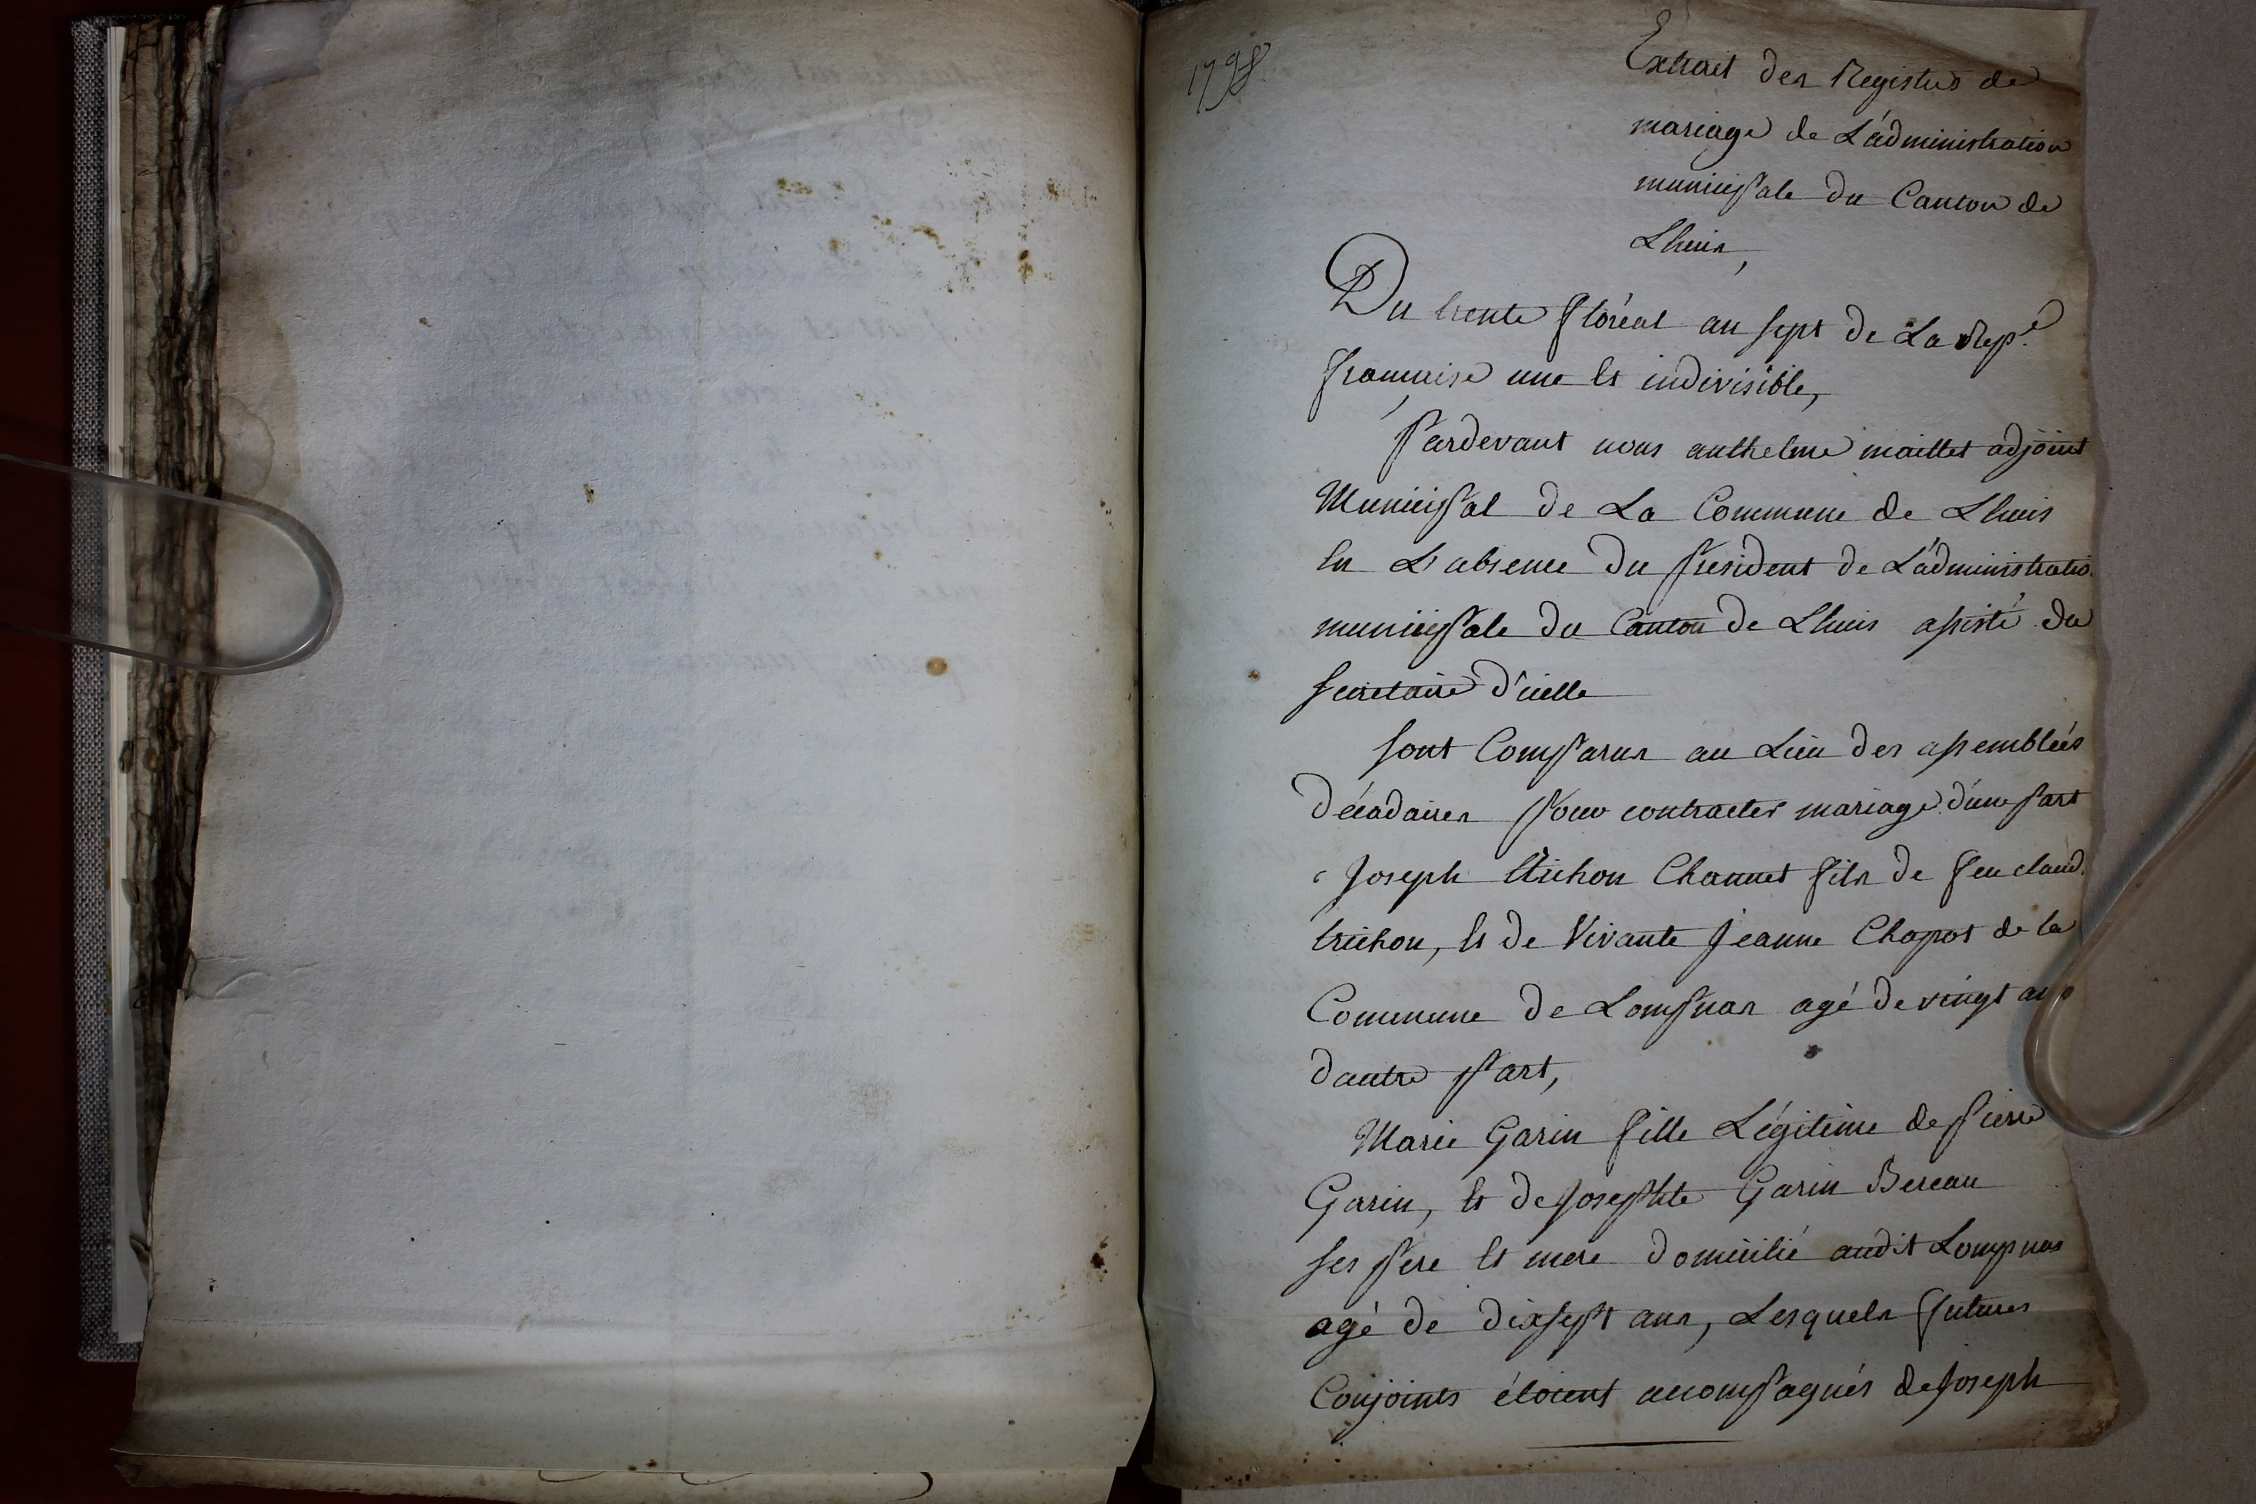 1798
Extrait des Registres de
mariage de L'administration
municipale du Canton de
Lhuis,
Du trente floréal an sept de La Rep.e
française une et indivisible,
Pardevant nous anthelme maillet adjoint
Municipal de La Commune de Lhuis
En L'absence du president de L'administratio.
municipale du Canton de Lhuis assisté du
secretaire d'icelle
sont Comparus au Lieu des assemblées
décadaires pour contracter mariage d'une part
Joseph trichon Channet fils de feu claud.
trichon, et de Vivante Jeanne Chapot de la
Commune de Lompnas agé de vingt ans
dautre part,
Marie Garin fille Légitime de pierre
Garin, et de Josephte Garin Bereau
ses pere et mere domicilié audit Lompnas
agé de dixsept ans, Lesquels futures
Conjoints étoient accompagnés de Joseph